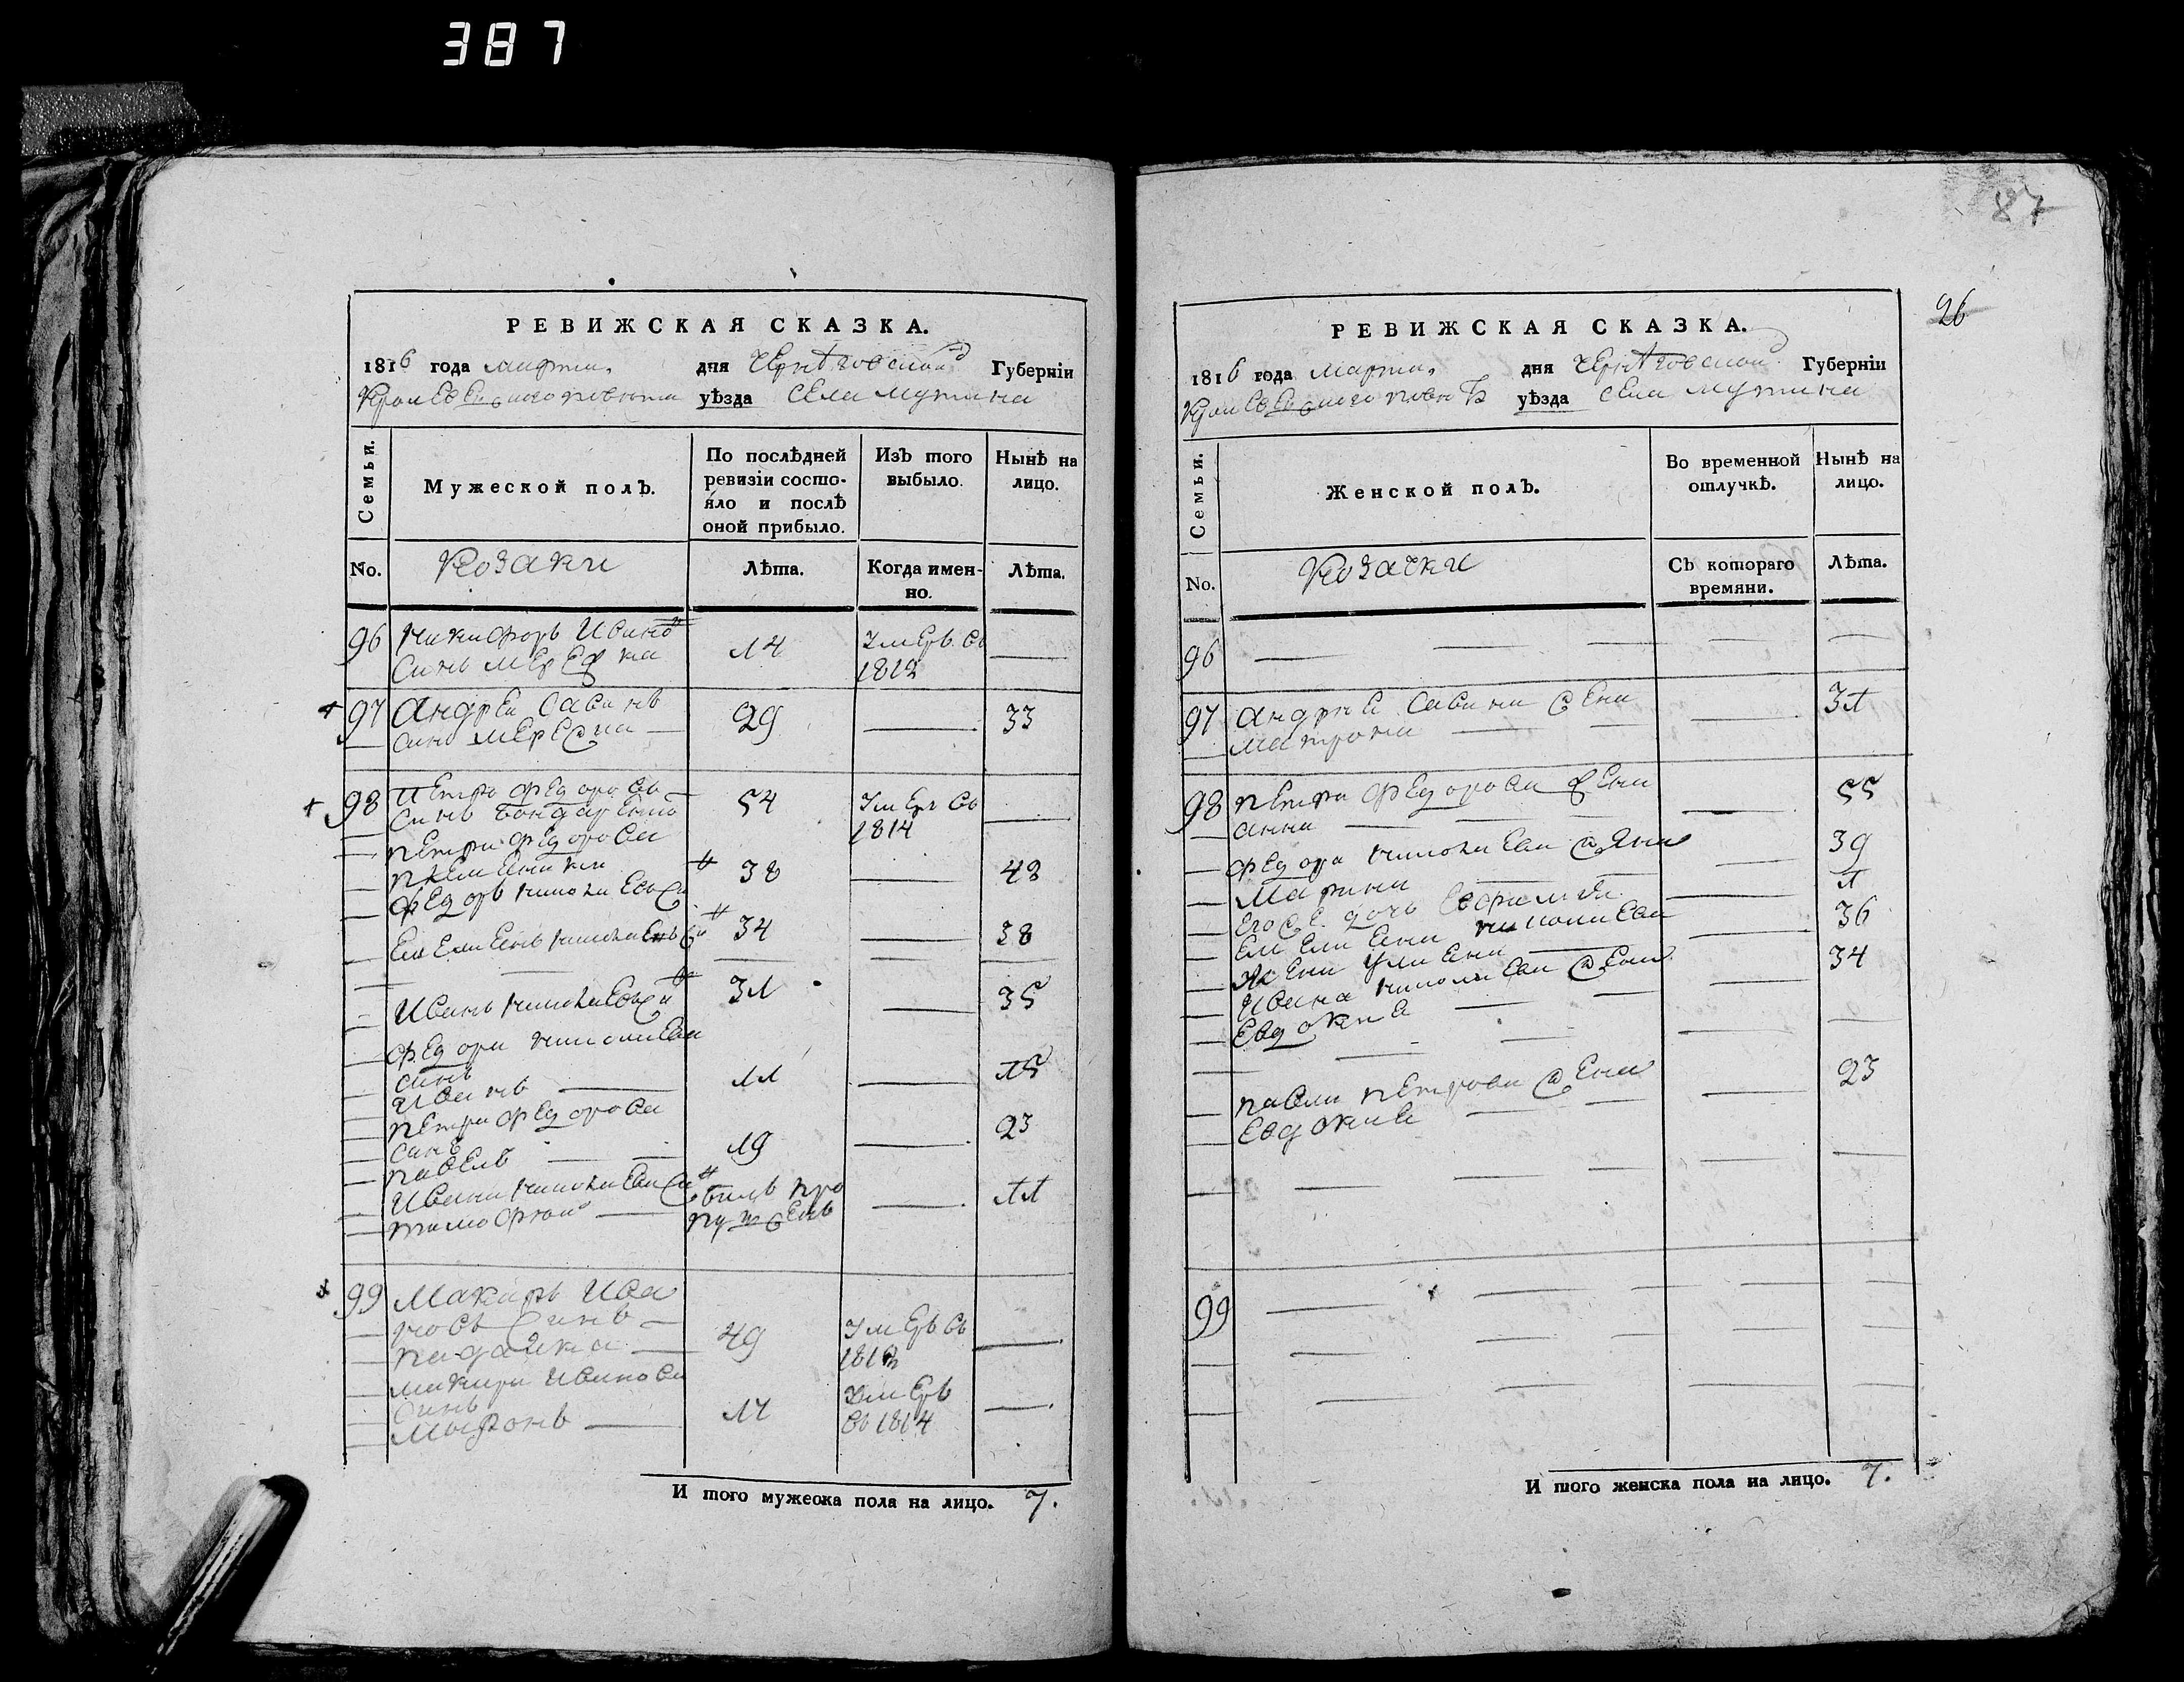 387
87
26
РЕВИЖСКАЯ СКАЗКА.
1816 года марта, дня Чернѣговской Губерніи
Кролевецкого повѣта уѣзда села Мутина
Семьи.
Мужеской полъ.
По послѣдней
ревизіи состо-
яло и послѣ
оной прибыло.
Изъ того
выбыло.
Нынѣ на
лицо.
No.
Козаки
Лѣта.
Когда имен-
но.
Лѣта.
96 Никифоръ Иванов
Синъ 14 Умеръ въ
1812
97 Андрей Савинъ
синъ 29 33
98 Петръ Федоровъ
Синъ Бондаренко 54 Умеръ въ
1814
Петра Федорова
племенники
Федоръ 38 42
Емелиенъ 34 38
Иванъ 31 35
Федора
синъ
Иванъ 11 15
Петра Федорова
синъ
Павелъ 19 23
Ивана
Тимофей билъ про
пущенъ 11
99 Макаръ Ива
новъ Синъ
49 Умеръ въ
181
Макара Иванова
Синъ
14 Умеръ
въ 1814
И того мужеска пола на лицо. 7.
РЕВИЖСКАЯ СКАЗКА.
1816 года марта, дня Чернѣговской Губерніи
Кролевецкого повѣ уѣзда села Мутина
Семьи.
Женской полъ.
Во временной
отлучкѣ.
Нынѣ на
лицо.
No.
Козачки
Съ котораго
времяни.
Лѣта.
96
97 Андрея Савина жена
Матрона 31
98 Петра Федорова жена
Анна 55
Федора жена
Марина 39
Его же дочь Евфимия 1
Емелиена
жена Улиена 36
Ивана жена
Евдокия 34
Павла Петрова жена
Евдокия 23
99
И того женска пола на лицо. 7.